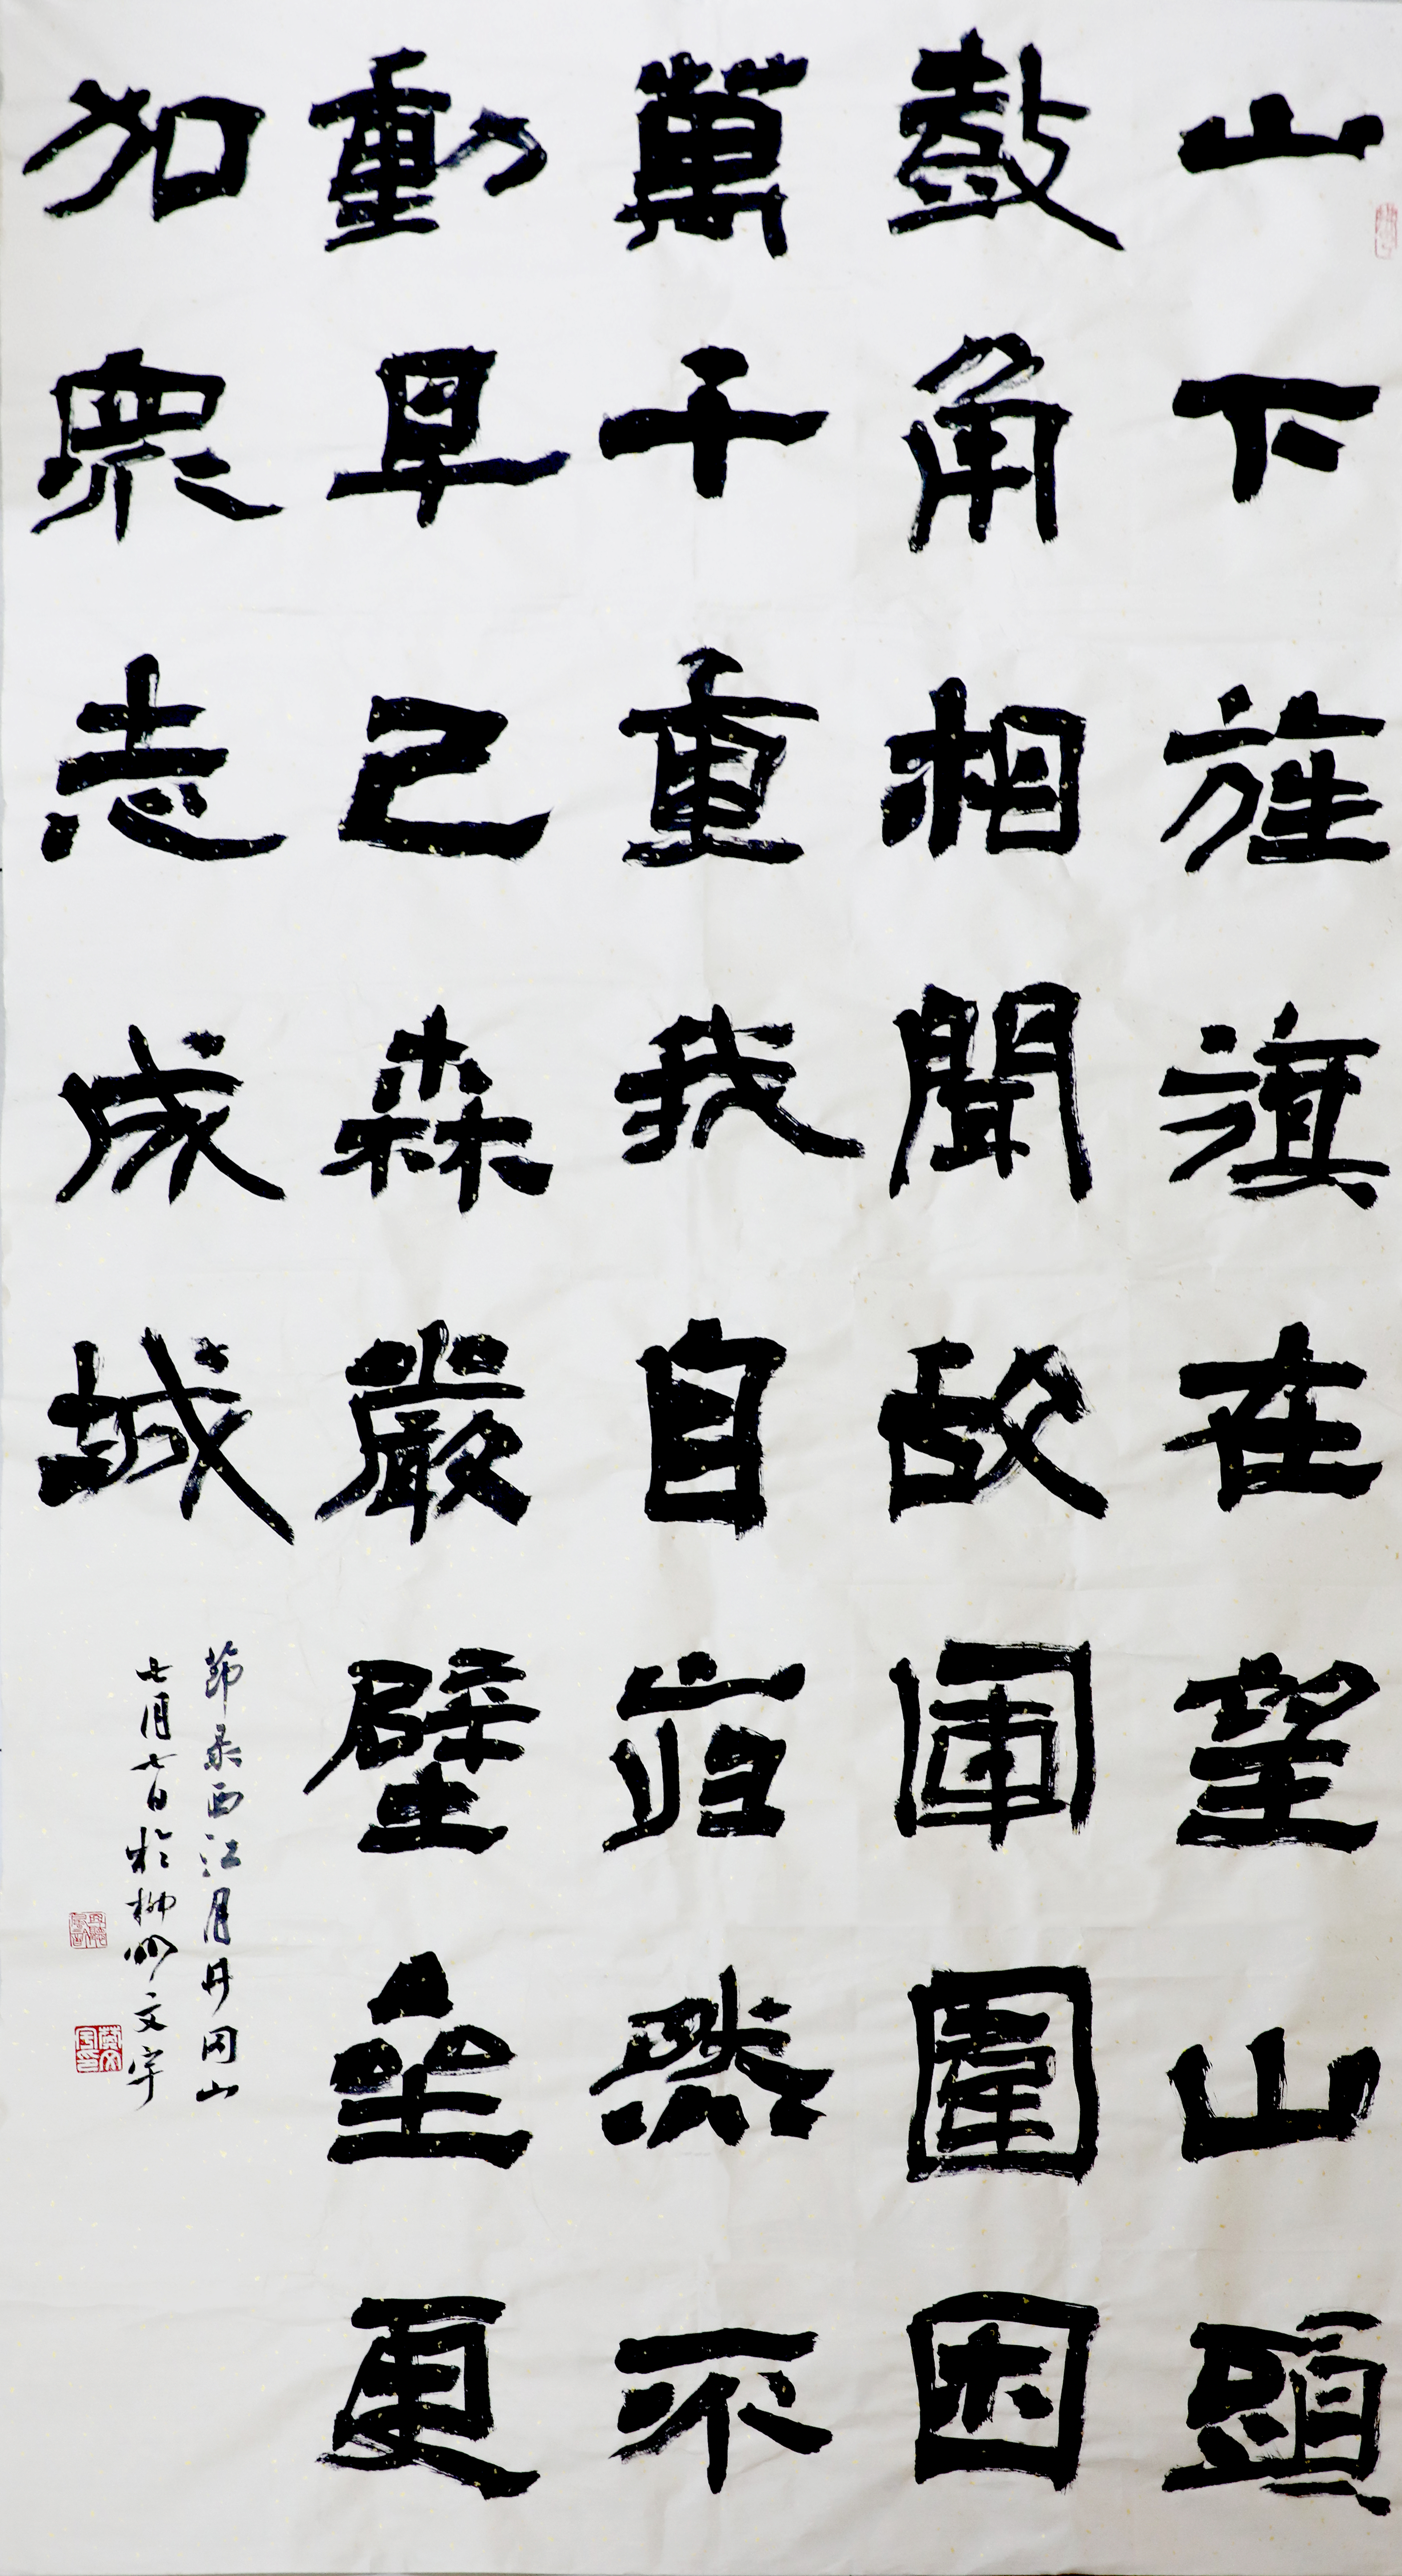 山下旌旗在望山頭
鼓角相聞敌軍圍困
萬千重我自岿然不
動早已森嚴壁垒更
加眾志成城
莭录西江月井冈山
七月七日於柳州文宇